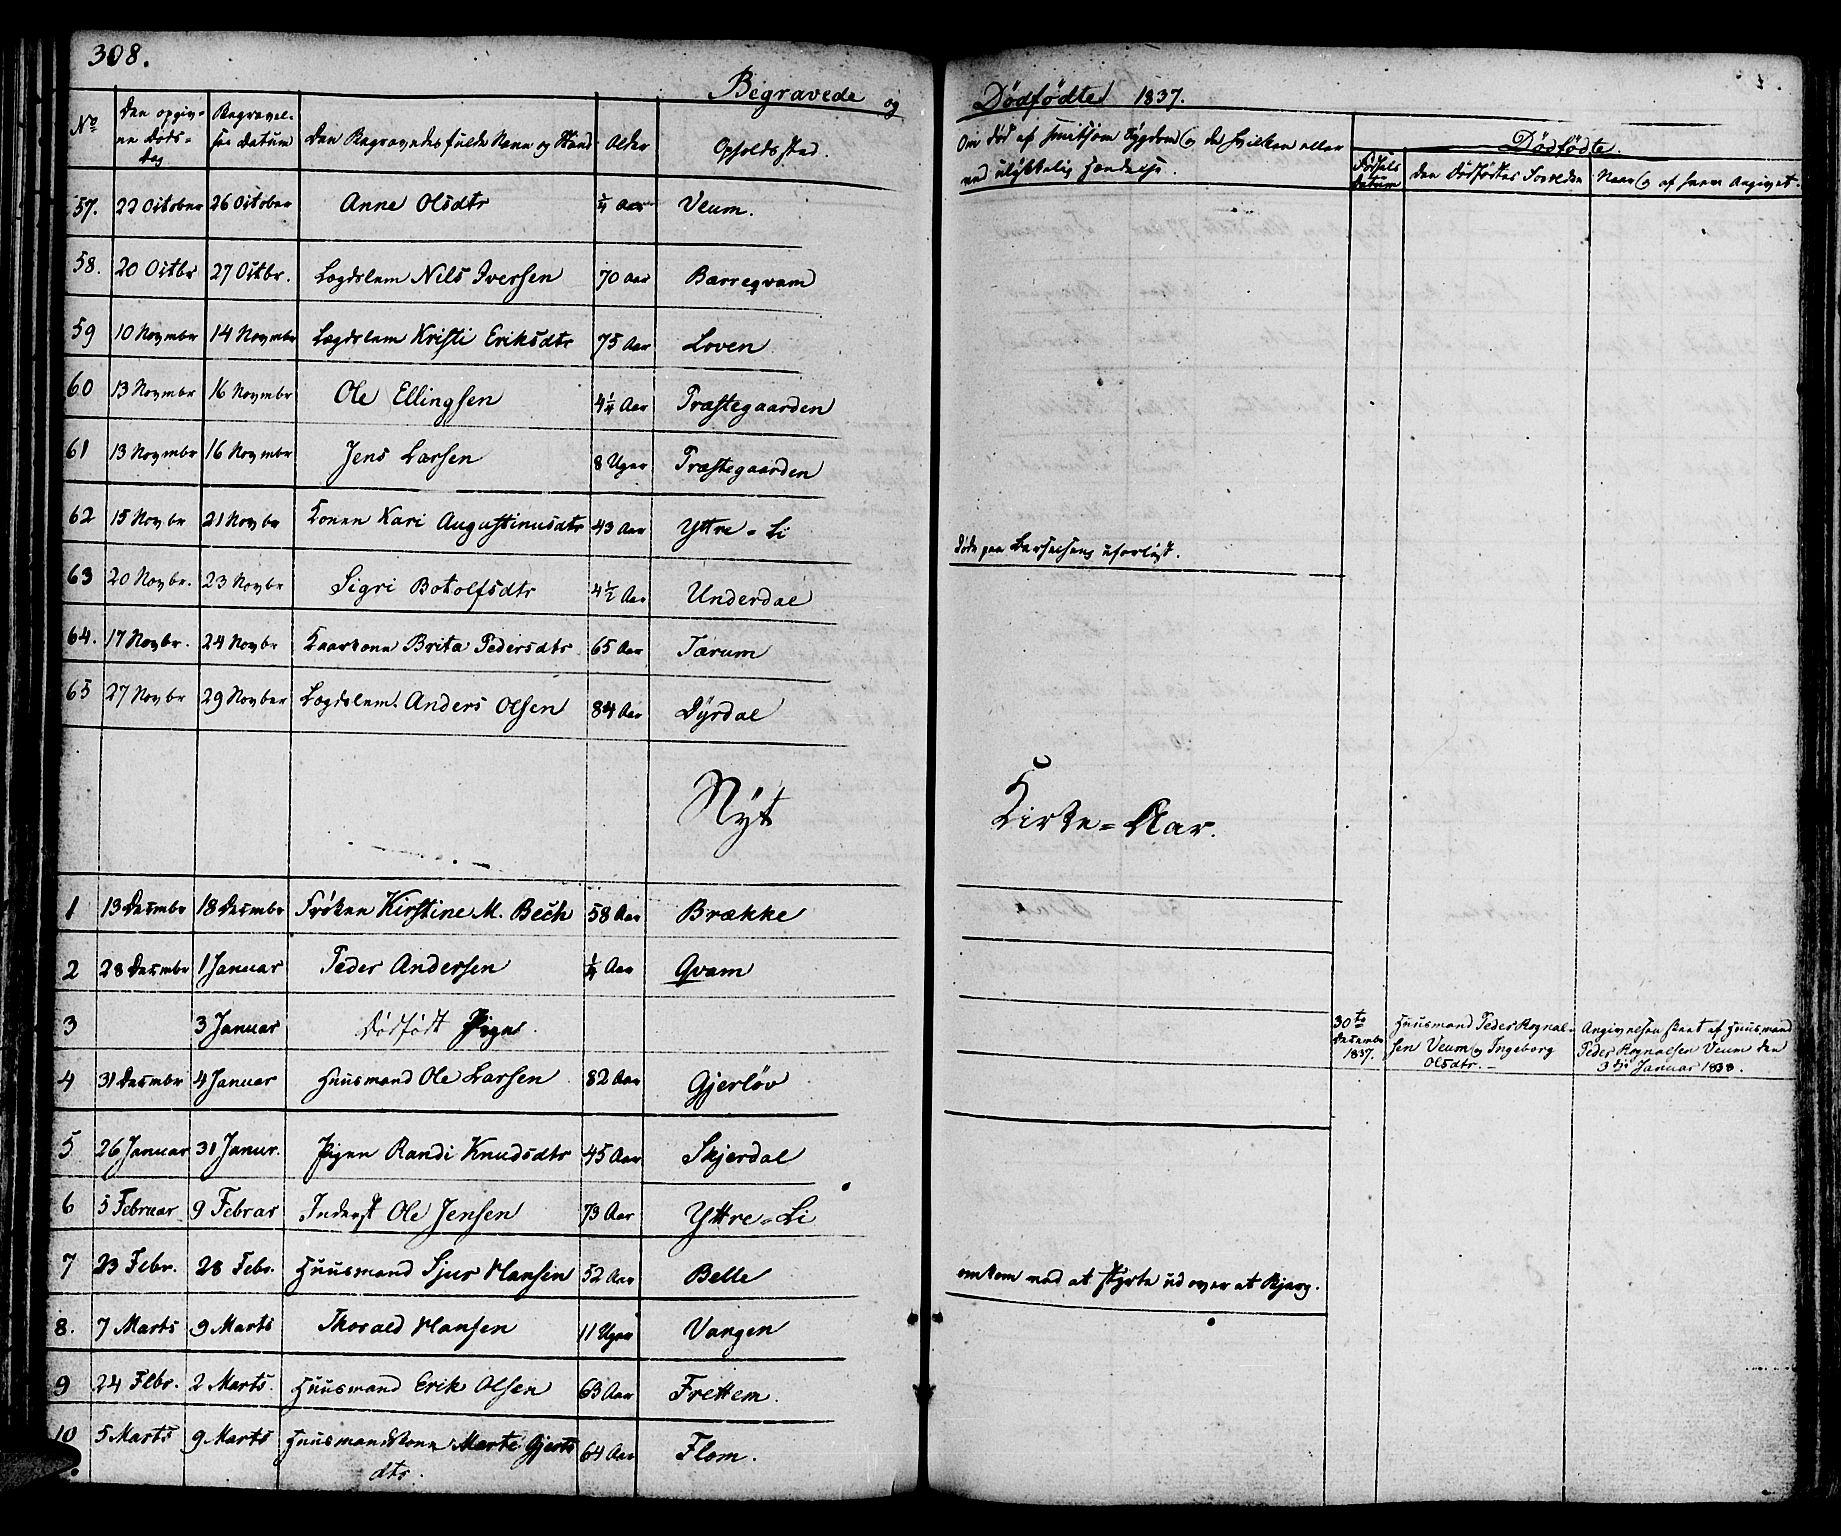 308.
Begravede og Dødfødte 1837.
No
Den opgiv-
ne Døds-
dag
Begravel-
ses Datum
Den Begravedes fulde Navn og Stand
Alder
Opholdssted.
Om død af smitsom Sygdom og da hvilken eller
ved ulykkelig Hændelse.
Dødfødte.
Fødsels
Datum
Den Dødfødtes Forældre
Naar og af hvem Angivet.
57. 22 October 26 October Anne Olsdtr ¼ Aar Veum.
58. 20 Octbr 27 Octbr. Lægdslem Nils Iversen 70 Aar Bærreqvam
59 10 Novmbr 14 Novmbr Lægdslem Kristi Eriksdtr 75 Aar Loven
60 13 Novmbr 16 Novmbr Ole Ellingsen 4¼ Aar Præstegaarden
61 13 Novmbr 16 Novmbr Jens Larsen 8 Uger Præstegaarden
62 15 Novbr 21 Novbr Konen Kari Augustinusdtr 43 Aar Yttre-Li døde paa Barselseng uforløst.
63 20 Novbr. 23 Novbr Sigri Botolfsdtr 4½ Aar Underdal
64. 17 Novbr. 24 Novbr Kaarkone Brita Pedersdtr 65 Aar Tærum
65 27 Novbr 29 Novber Lægdslem. Anders Olsen 84 Aar Dyrdal
Nyt Kirke-Aar.
1 13 Decmbr 18 Decmbr Frøken Kirstine M. Bech 58 Aar Brække
2 28 Decmbr 1 Januar Peder Andersen ¼ Aar Qvam
3 3 Januar Dødfødt Pige. 30te Decembr 1837. Huusmand Peder Rognal-
sen Veum og Ingeborg
Olsdtr. - Angivelsen skeet af Huusmand
Peder Rognalsen Veum den
3die Januar 1838.
4 31 Decmbr 4 Januar Huusmand Ole Larsen 82 Aar Gjerløv
5 26 Januar 31 Janur. Pigen Randi Knudsdtr 45 Aar Skjerdal
6 5 Februar 9 Febrar Inderst Ole Jensen 73 Aar Yttre-Li
7 23 Febr. 28 Febr. Huusmand Sjur Hansen 52 Aar Belle omkom ved at styrte ud over et Bjerg.
8. 7 Marts 9 Marts Thorald Hansen 11 Uger Vangen
9 24 Febr. 2 Marts. Huusmand Erik Olsen 63 Aar Frettem.
10 5 Marts 9 Marts Huusmandskone Marte Gjerts
dtr. 64 Aar Flom.